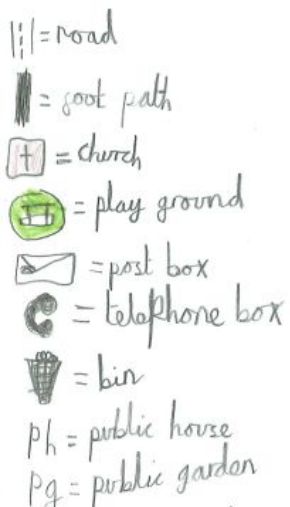 = road
= foot path
= church
= play ground
= post box
= telephone box
= bin
ph = public house
pg = public garden